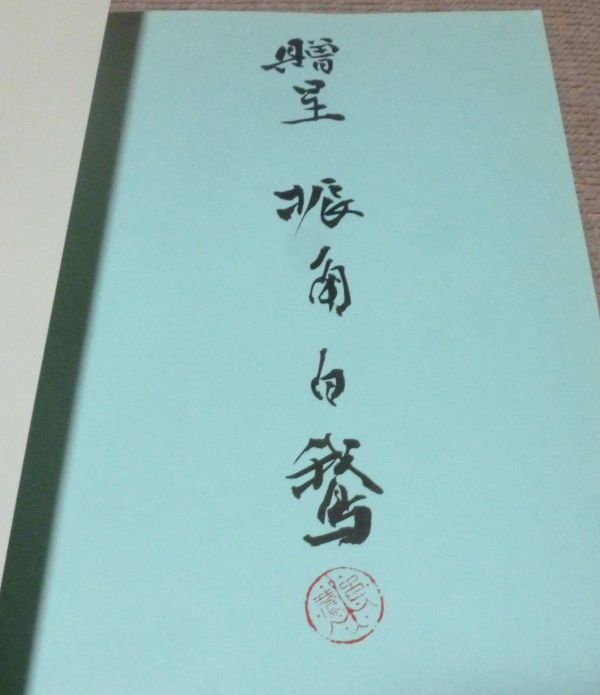 贈呈 振角白鵞